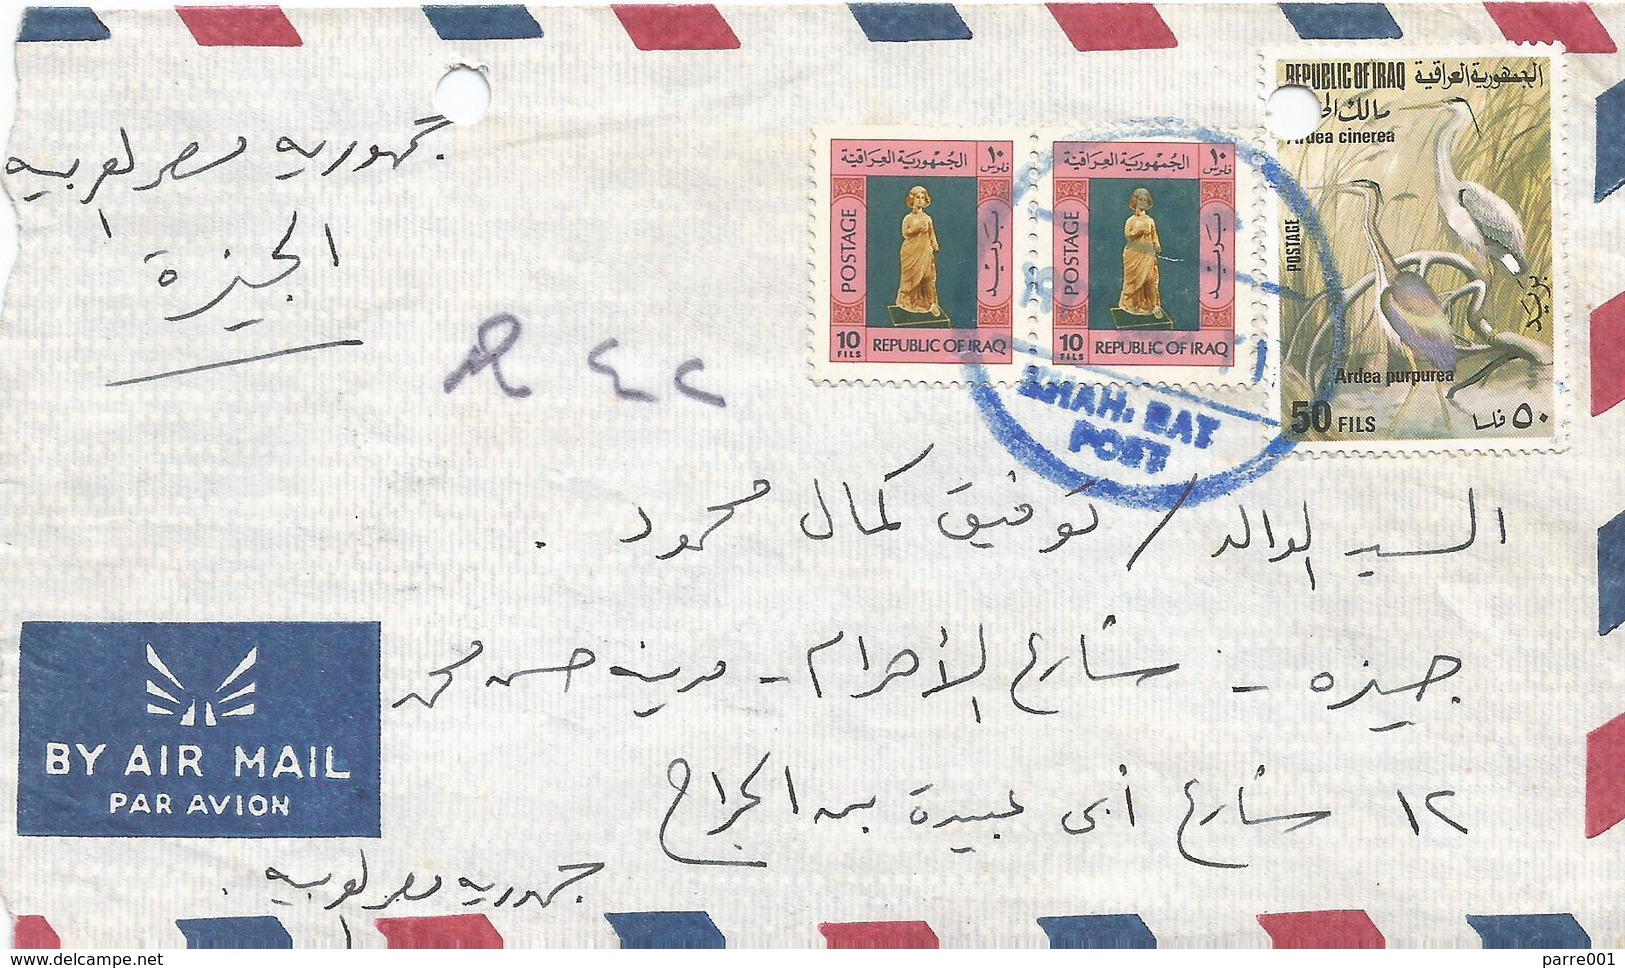 جمهورية مصر العربية
الجيزة
R ٤٤٢
١٠ فلوس الجمهورية العراقية
POSTAGE
بريد
10 FILS REPUBLIC OF IRAQ
١٠ فلوس الجمهورية العراقية
POSTAGE
بريد
10 FILS REPUBLIC OF IRAQ
REPUBLIC OF IRAQ الجمهورية العراقية
مالك
Ardea cinerea
POSTAGE
بريد
Ardea purpurea
50 FILS ٥٠ فلسا
POST
السيد الوالد / توفيق كمال محمود .
جيزه - شارع الأهرام - مدينه حسن محمد
١٢ شارع أبى عبيدة بن الجراح
جمهوريه مصر العربيه .
BY AIR MAIL
PAR AVION
www.delcampe.net
parre001